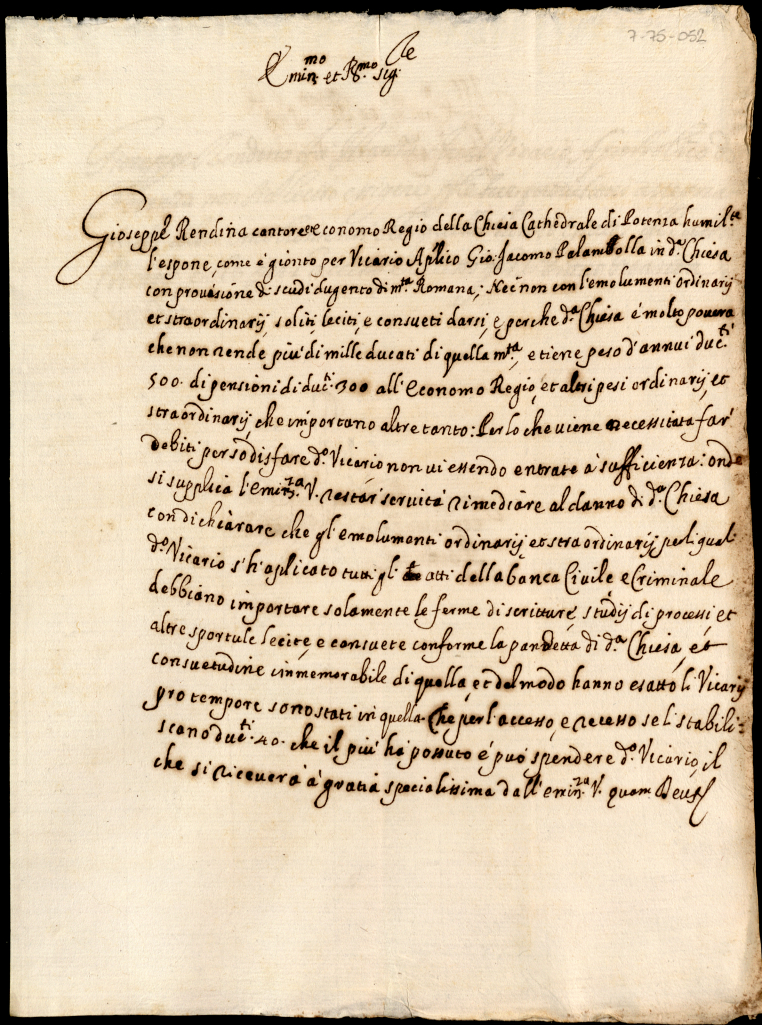 7-75-052
Emin.mo et R.mo Sig.re
Gioseppe Rendina cantore et economo Regio della Chiesa Cathedrale di Potenza humil.te
l'espone, come è gionto per Vicario Aplico Gio: Jacomo Palambolla in d.a Chiesa
con provisione di scudi dugento di m.ta Romana; Nec non con l'emolumenti ordinarij
et straordinarij soliti, leciti, e consueti darsi, e perche d.a Chiesa é molto povera
che non rende piu' di mille ducati di quella m.ta, e tiene peso d'annui duc.ti
500. di pensioni di duc.ti 300 all'Economo Regio, et altri pesi ordinarij, et
straordinarij, che importano altre tanto: Per lo che viene necessitata far'
debiti per sodisfare d.o Vicario non vi essendo entrate á sufficienza: onde
si supplica l'Emin.za V. restar' servita rimediare al danno di d.a Chiesa
con dichiarare che gl'emolumenti ordinarij et straordinarij per li quali
d.o Vicario s'hà aplicato tutti gl' atti della banca Civile e Criminale
debbiano importare solamente le ferme di scritture, studij di processi, et
altre sportule lecite, e consuete conforme la pandetta di d.a Chiesa, et
consuetudine inmemorabile di quella, et del modo hanno esatto li Vicarij
pro tempore sono stati in quella. Che per l'accesso, e recesso se li stabili=
scano duc.ti 40. che il piu' há possuto é puó spendere d.o Vicario, il
che si riceverá á gratia specialissima dall'emin.za V. quam Deus